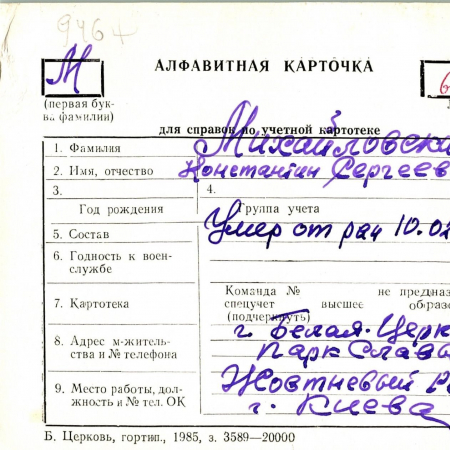 9464
М
АЛФАВИТНАЯ КАРТОЧКА
(первая бук-
ва фамилии)
для справок по учетной картотеке
1. Фамилия
2. Имя, отчество Константин Сергеев
3.
4.
Год рождения
Группа учета
5. Состав Умер от ран 10.02
6. Годность к воен-
службе
Команда № не предназ
7. Картотека спецучет высшее образо
(подчеркнуть)
8. Адрес м-житель- г. Белая-Церк
ства и № телефона Парк Славы
9. Место работы, дол- Жовтневый Р
жность и № тел. ОК г. Киева
Б. Церковь, гортип., 1985, з. 3589—20000